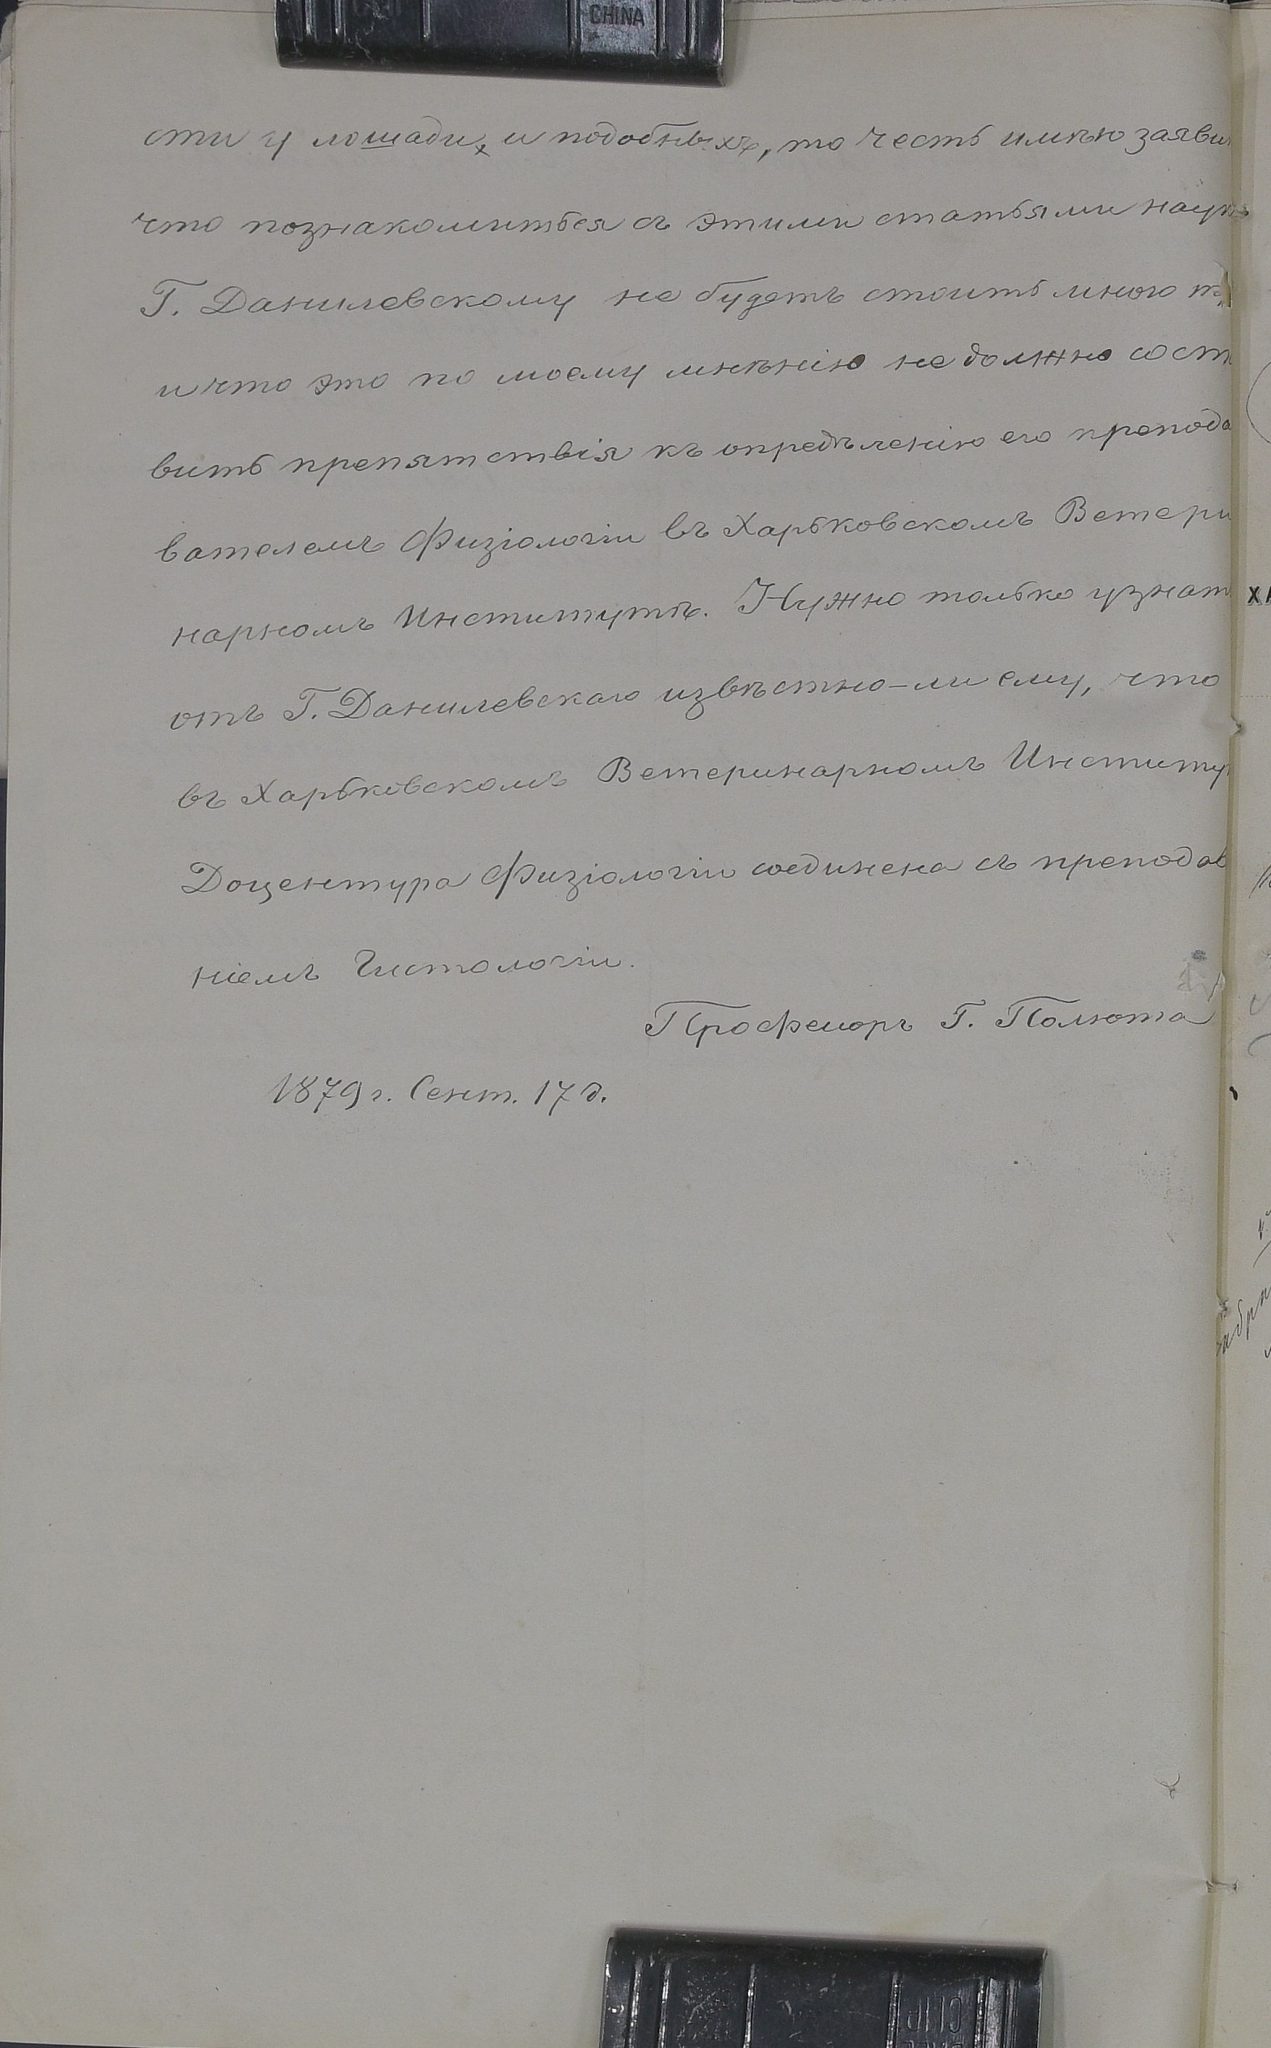 CHINA
сти у лошади, и подобныхъ, то честь имѣю заяви
что познакомиться съ этими статьями наук
Г. Данилевскому не будетъ стоить много т
и что это по моему мнѣнію не должно соста
вить препятствія къ опредѣленію его препода
вателемъ Физіологіи въ Харьковскомъ Ветери
нарномъ Институтѣ. Нужно только узнат
отъ Г. Данилевскаго извѣстно-ли ему, что
въ Харьковскомъ Ветеринарномъ Институ
Доцентура Физіологіи соединена съ преподав
ніемъ Гистологіи.
Професоръ Г. Полюта
1879 г. Сент. 17 д.
CLIP